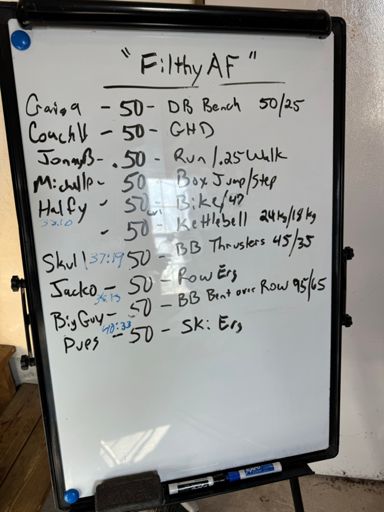 "Filthy AF"
Craig - 50 - DB Bench 50/25
Coach - 50 - GHD
JonnyB - .50 - Run/.25 Walk
Michelle - 50 - Box Jump/Step
Halfy - 50 - Bike/40
- 50 - Kettlebell 24kg/18kg
Skull 37:19 50 - BB Thrusters 45/35
Jacko - 50 - Row Erg
Big Guy - 50 - BB Bent over Row 95/65
Pups 40:33 - 50 - Ski Erg